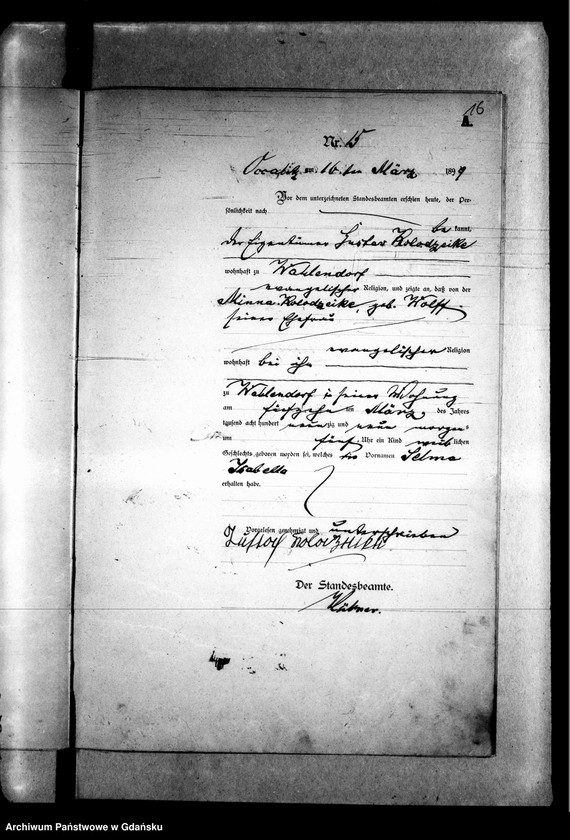 16
A.
Nr. 15
Occalitz am 16 ten März 1899
Vor dem unterzeichneten Standesbeamten erschien heute, der Per-
sönlichkeit nach
be kannt,
der Eigentümer Gustav Kolodzeike
wohnhaft zu Wahlendorf
evangelischer Religion, und zeigte an, daß von der
Minna Kolodzeike, geb. Wolff
seiner Ehefrau
evangelischer Religion
wohnhaft bei ihm
zu Wahlendorf in seiner Wohnung
am fünfzehn ten März des Jahres
tausend acht hundert neunzig und neun morgens
um fünf Uhr ein Kind weiblichen
Geschlechts geboren worden sei, welches die Vornamen Selma
Isabella
erhalten habe.
Vorgelesen, genehmigt und unterschrieben
Gustav
Der Standesbeamte.
Hübner.
Archiwum Państwowe w Gdańsku